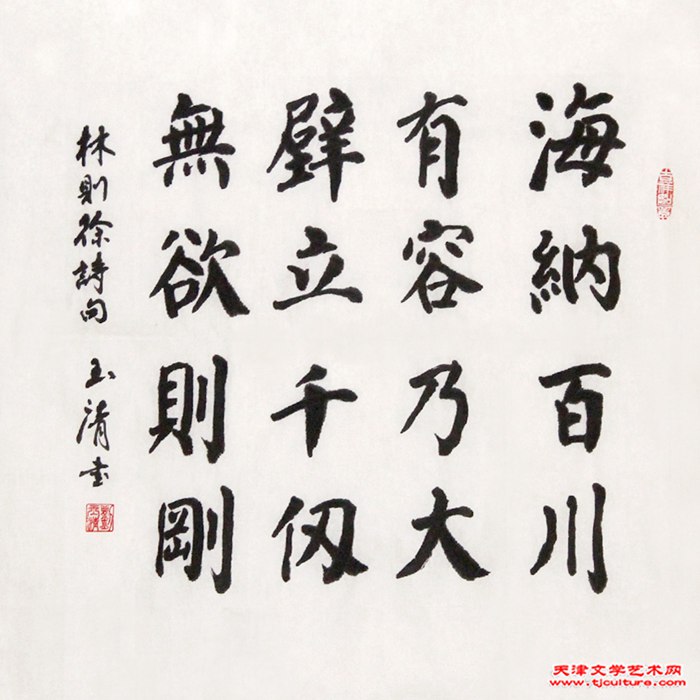 海納百川
有容乃大
壁立千仞
無欲則剛
林則徐詩句 玉清书
天津文学艺术网
www.tjculture.com